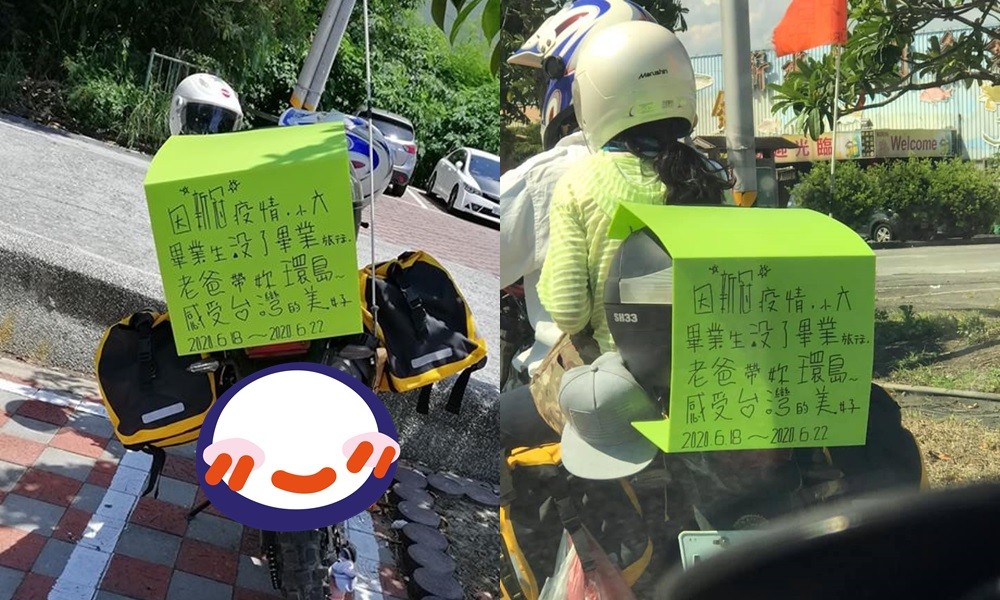 因新冠疫情.小六
畢業生没了畢業旅行.
老爸帶妳環島~
感受台灣的美好
2020.6.18～2020.6.22
Marushin
迎光臨 Welcome
SH33
因新冠疫情.小六
畢業生没了畢業旅行.
老爸帶妳環島~
感受台灣的美好
2020.6.18～2020.6.22